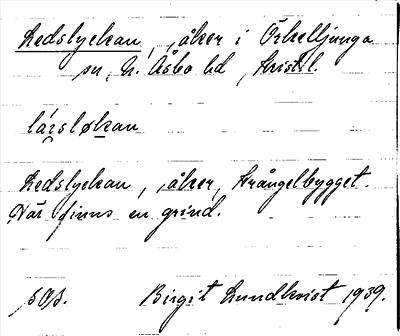 Ledslyckan, åker i Örkelljunga
sn, N. Åsbo hd, Kristl.
Ledslyckan, åker, Krångelbygget.
Där finns en grind.
Birgit Lundkvist 1939.